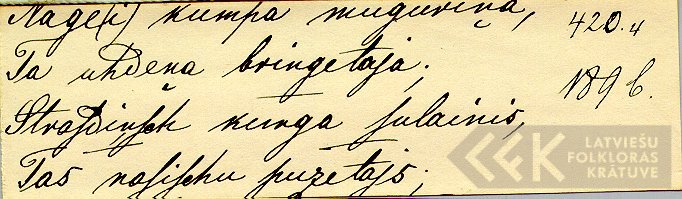 Nage(i) kumpa muguriņa, 420.4
Ta uhdeņa bringetaja;
Strasdinsch kunga sulainis,
Tas nasischu puzetajs;
1896.
LATVIEŠU
FOLKLORAS
KRĀTUVE